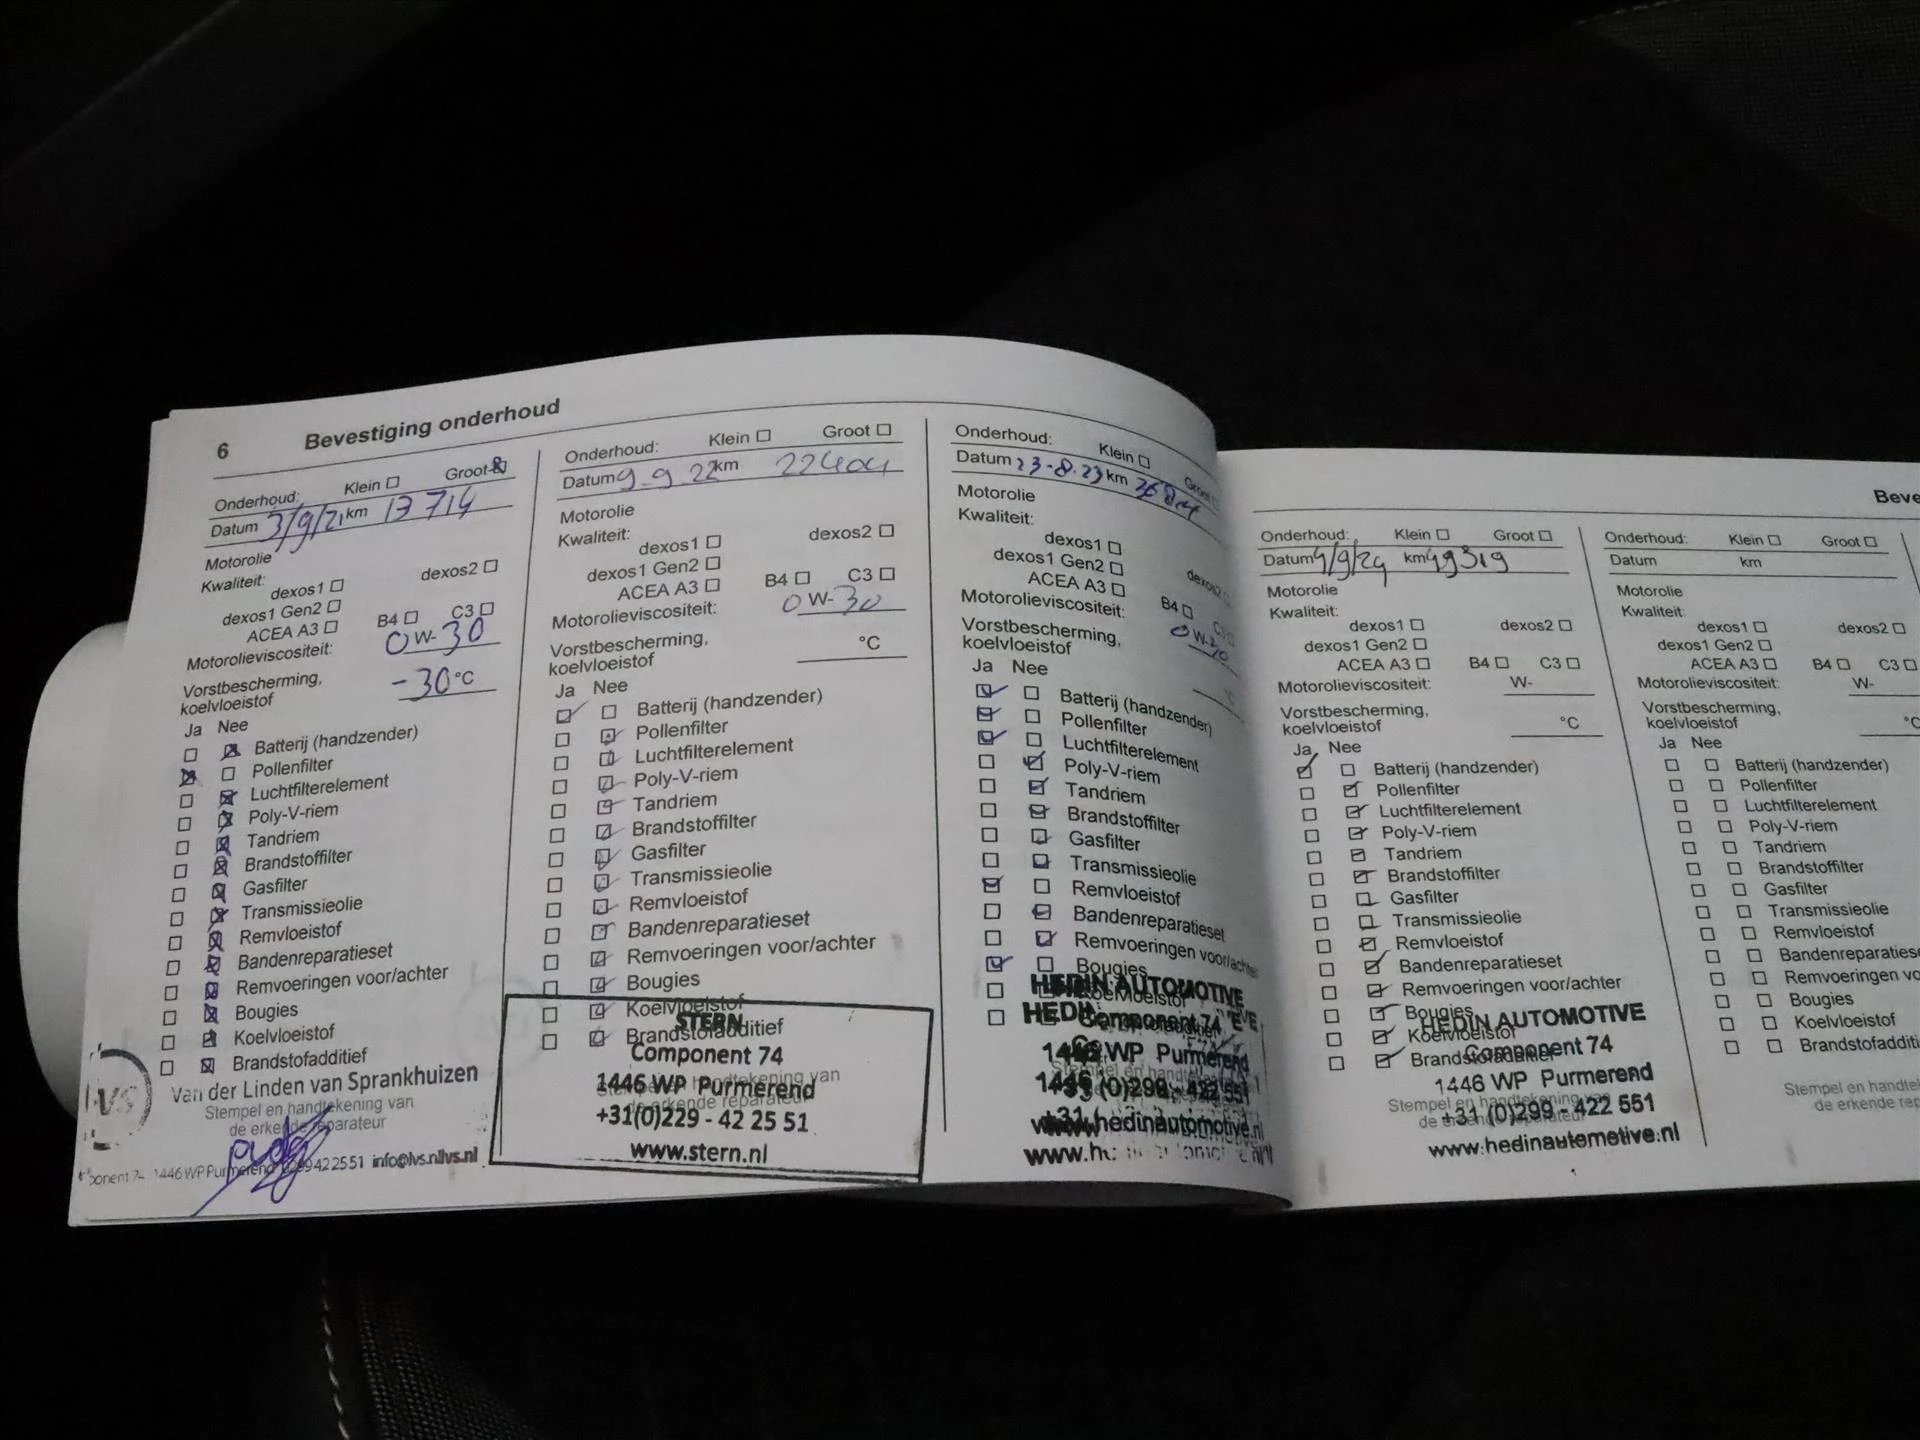 6 Bevestiging onderhoud
Onderhoud: Klein Groot
Datum 3/9/21 km 13714
Motorolie
Kwaliteit:
dexos1 dexos2
dexos1 Gen2
ACEA A3 B4 C3
Motorolieviscositeit: 0 W- 30
Vorstbescherming,
koelvloeistof -30 °C
Ja Nee
Batterij (handzender)
Pollenfilter
Luchtfilterelement
Poly-V-riem
Tandriem
Brandstoffilter
Gasfilter
Transmissieolie
Remvloeistof
Bandenreparatieset
Remvoeringen voor/achter
Bougies
Koelvloeistof
Brandstofadditief
Van der Linden van Sprankhuizen
Stempel en handtekening van
de erkende reparateur
1446 WP Purmerend 0299422551 info@lvs.nl lvs.nl
Onderhoud: Klein Groot
Datum 9-9 22 km 22404
Motorolie
Kwaliteit:
dexos1 dexos2
dexos1 Gen2
ACEA A3 B4 C3
Motorolieviscositeit: 0 W- 30
Vorstbescherming,
koelvloeistof °C
Ja Nee
Batterij (handzender)
Pollenfilter
Luchtfilterelement
Poly-V-riem
Tandriem
Brandstoffilter
Gasfilter
Transmissieolie
Remvloeistof
Bandenreparatieset
Remvoeringen voor/achter
Bougies
Koelvloeistof
Brandstofadditief
STERN
Component 74
1446 WP Purmerend
Stempel en handtekening van
de erkende reparateur
+31(0)229 - 42 25 51
www.stern.nl
Onderhoud: Klein Groot
Datum 23-8-23 km
Motorolie
Kwaliteit:
dexos1 dexos2
dexos1 Gen2
ACEA A3 B4
Motorolieviscositeit: 0 W-
Vorstbescherming,
koelvloeistof °C
Ja Nee
Batterij (handzender)
Pollenfilter
Luchtfilterelement
Poly-V-riem
Tandriem
Brandstoffilter
Gasfilter
Transmissieolie
Remvloeistof
Bandenreparatieset
Remvoeringen voor/achter
Bougies
Koelvloeistof
HEDIN AUTOMOTIVE
Component 74
1446 WP Purmerend
+31 (0)299 - 422 551
www.hedinautomotive.nl
Onderhoud: Klein Groot
Datum 4/9/24 km 49319
Motorolie
Kwaliteit:
dexos1 dexos2
dexos1 Gen2
ACEA A3 B4 C3
Motorolieviscositeit: W-
Vorstbescherming,
koelvloeistof °C
Ja Nee
Batterij (handzender)
Pollenfilter
Luchtfilterelement
Poly-V-riem
Tandriem
Brandstoffilter
Gasfilter
Transmissieolie
Remvloeistof
Bandenreparatieset
Remvoeringen voor/achter
Bougies
Koelvloeistof
Brandstofadditief
HEDIN AUTOMOTIVE
Component 74
1446 WP Purmerend
Stempel en handtekening van
de erkende reparateur
+31 (0)299 - 422 551
www.hedinautomotive.nl
Beve
Onderhoud: Klein Groot
Datum km
Motorolie
Kwaliteit:
dexos1 dexos2
dexos1 Gen2
ACEA A3 B4 C3
Motorolieviscositeit: W-
Vorstbescherming,
koelvloeistof °C
Ja Nee
Batterij (handzender)
Pollenfilter
Luchtfilterelement
Poly-V-riem
Tandriem
Brandstoffilter
Gasfilter
Transmissieolie
Remvloeistof
Bandenreparatiese
Remvoeringen vo
Bougies
Koelvloeistof
Brandstofadditi
Stempel en handte
de erkende rep